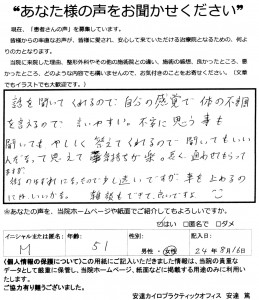 “あなた様の声をお聞かせください”
現在、「患者さんの声」を募集しています。
皆様からの率直なお声が、皆様に愛され、安心して来ていただける治療院となるための、何よりの力となります。
当院に来院した理由、整形外科やその他の施術院との違い、施術の感想、良かったところ、悪かったところ、どのような内容でも構いませんので、お気付きのことをお寄せください。（文章でもイラストでも大歓迎です。）
話を聞いてくれるので、自分の感覚で体の不調
を言えるので 言いやすい。不安に思う事も
聞いてもやさしく答えてくれるので 聞いてもいい
んかなって思えて 気持ちが楽。長く通わせてもらって
ますが
街のはずれにあるので少し遠いですが、車を止めるの
にはいいかも。 雑談もできて、良いですよ
※あなたの声を、当院ホームページや紙面でご紹介してもよろしいですか。
☑はい □匿名で □ダメ
イニシャルまたは匿名： 年齢： 記入日：
M 51 男性・女性 24年8月16日
（個人情報の保護について）この用紙にご記入いただきました情報は、当院の貴重なデータとして厳重に保管し、当院ホームページ、紙面などに掲載する用途のみに利用いたします。
ご協力有り難うございました。
安達カイロプラクティックオフィス 安達 篤